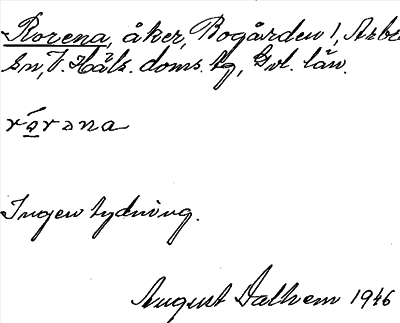 Rorena, åker, Bogården 1, Arbrå
sn, V. Häls. doms. tg, Gvl. län.
rórəna
Ingen tydning.
August Dalhem 1946